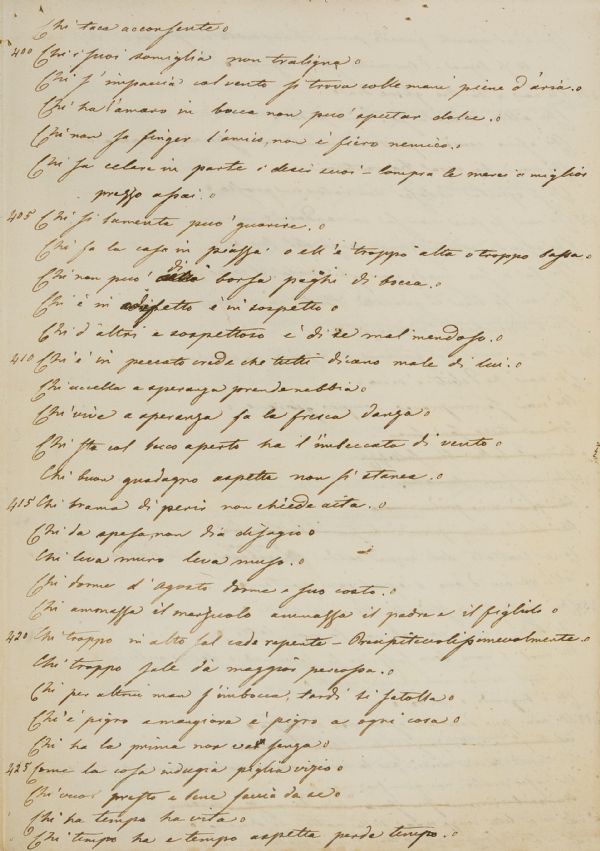 Chi tace acconsente
400 Chi i suoi somiglia non traligna
Chi s'impaccia col vento si trova colle mani piene d'aria.
Chi ha l'amaro in bocca non può sputar dolce.
Chi non sa finger l'amico, non è fiero nemico.
Chi sa celare in parte i desei suoi - compra le merci a miglior
prezzo assai.
405 Chi si lamenta può guarire.
Chi fa la casa in piazza o ell'è troppo alta o troppo bassa
Chi non può di borsa paghi di bocca.
Chi è in difetto è in sospetto
Chi d'altri è sospettoso è di se mal mendoso.
410 Chi è in peccato crede che tutti dicano male di lui.
Chi uccella a speranza prende nebbia
Chi vive a speranza fa la fresca danza
Chi sta col becco aperto ha l'imbeccata di vento
Chi buon guadagno aspetta non si stanca.
415 Chi brama di perir non chiede aita.
Chi da spesa, non dia disagio
Chi leva muro leva muso.
Chi dorme d'Agosto dorme a suo costo.
Chi ammazza il marzuolo ammazza il padre e il figliolo
420 Chi troppo in alto sal cade repente - Precipitevolissimevolmente
Chi troppo sale dà maggior percossa.
Chi per altrui man s'imbocca, tardi si satolla
Chi è pigro a mangiare è pigro a ogni cosa
Chi ha la prima non va senza
425 Come la cosa indugia piglia vizio
Chi vuol presto e bene faccia da se
Chi ha tempo ha vita
Chi tempo ha e tempo aspetta perde tempo.